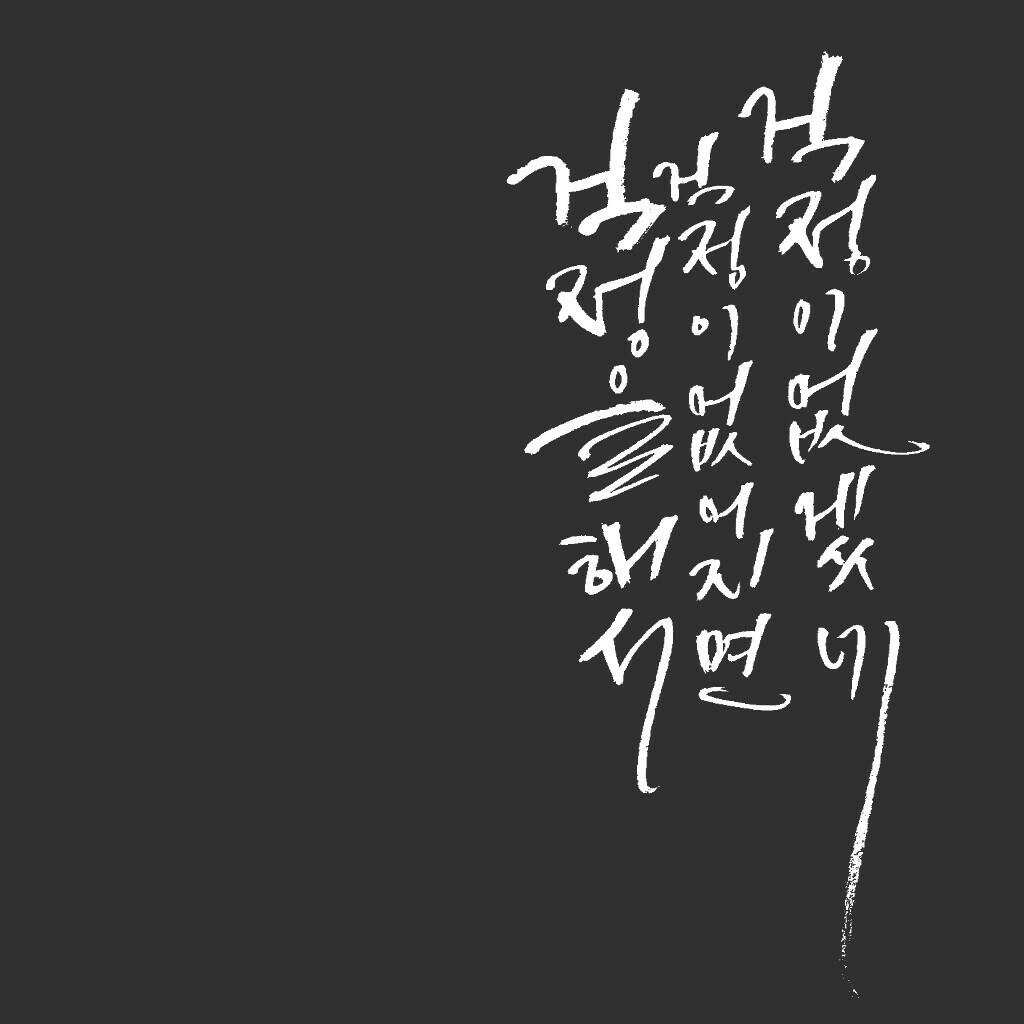 걱정을해서
걱정이없어지면
걱정이없겠네